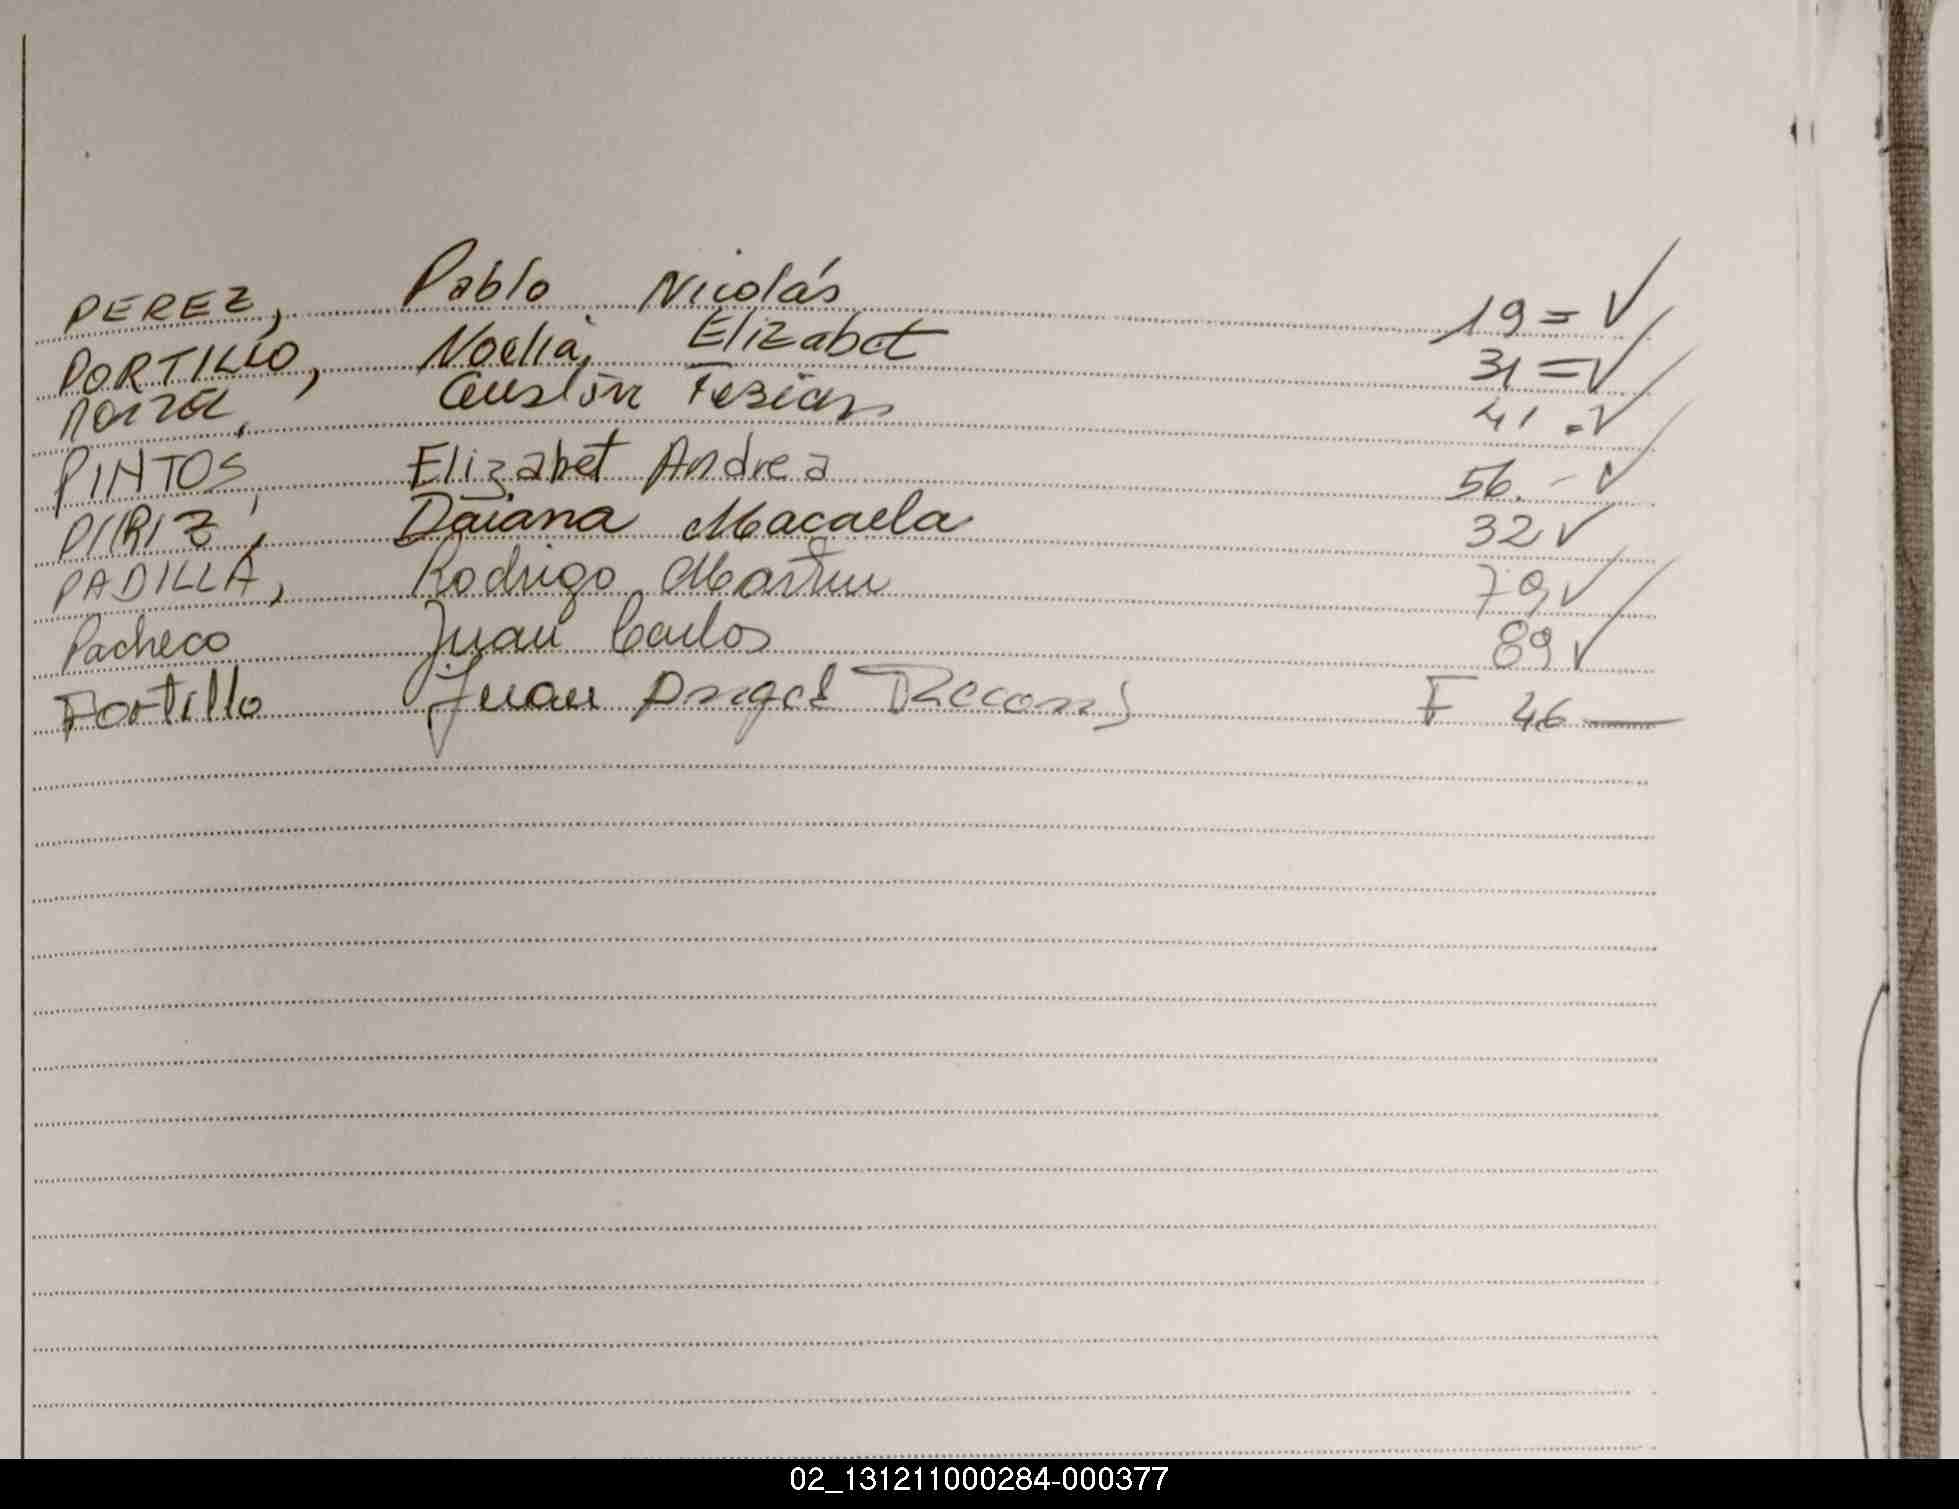 PEREZ, Pablo Nicolás 19 = ✓
PORTILLO, Noelia, Elizabet 31 = ✓
Fabian 41 . ✓
PINTOS, Elizabet Andrea 56. - ✓
PIIRIZ, Daiana Macaela 32 ✓
PADILLA, Rodrigo Martin 79 ✓
Pacheco Juan Carlos 89 ✓
Portillo Juan Angel F 46 —
02_131211000284-000377